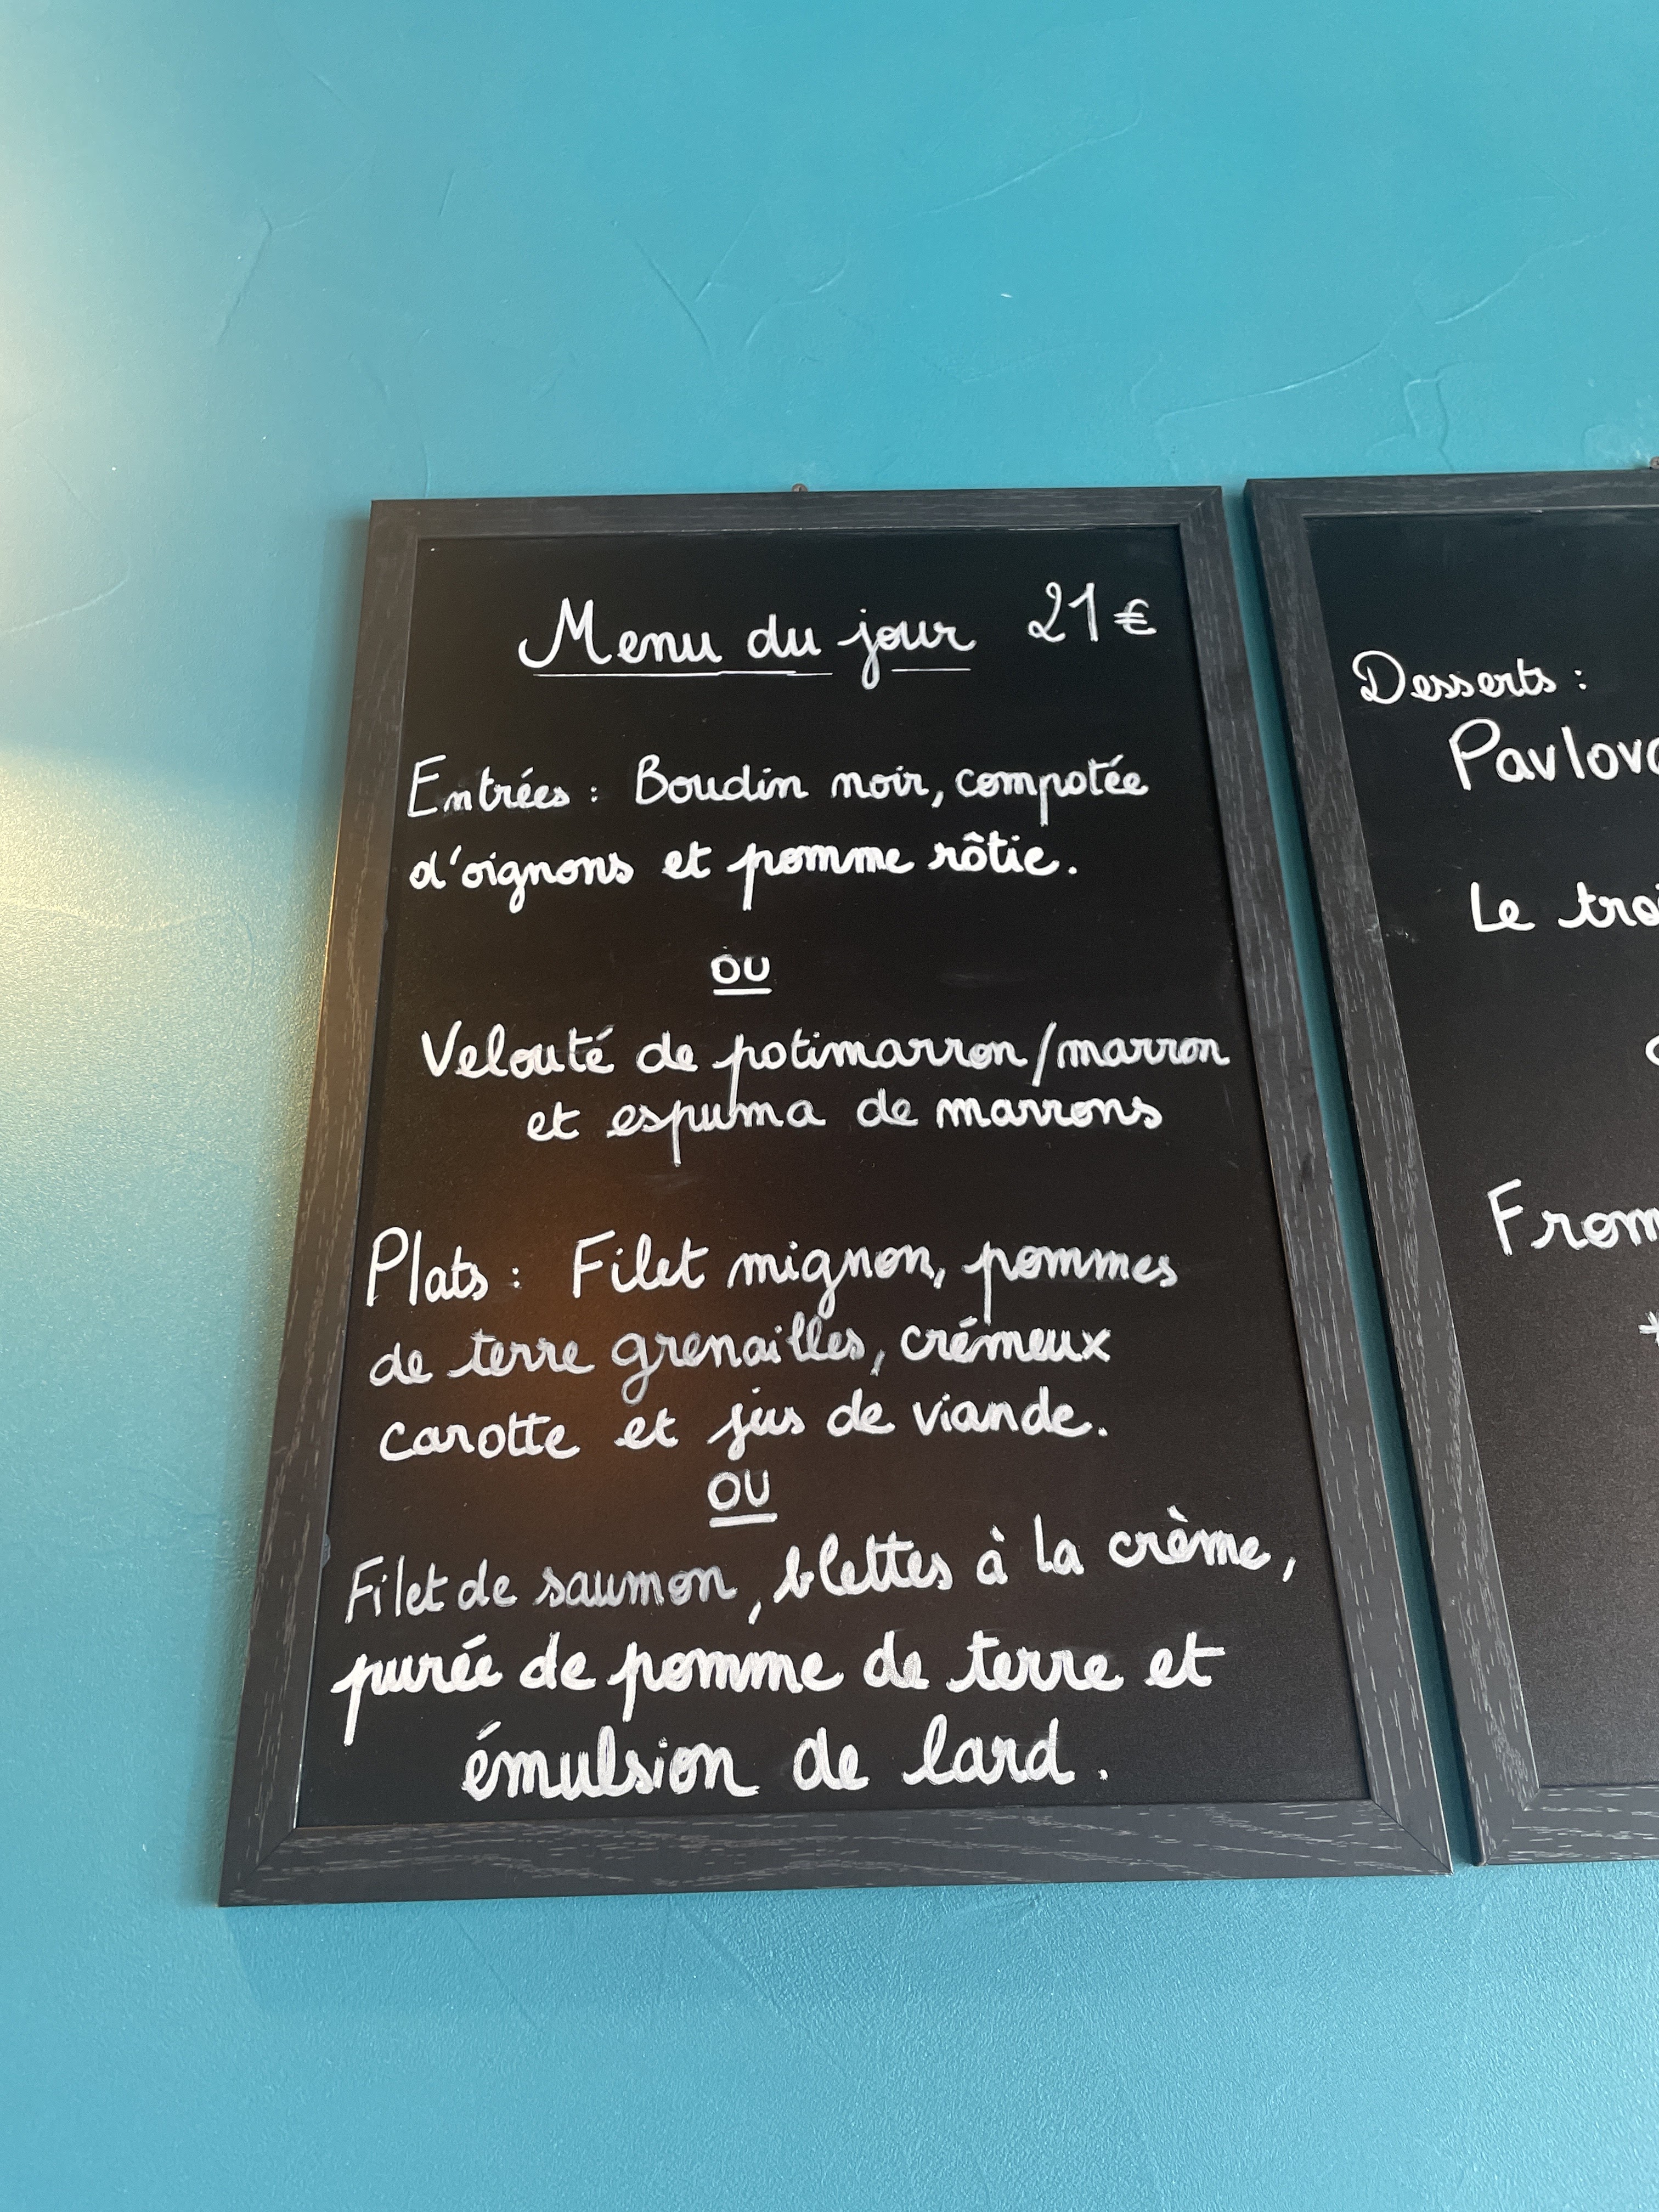 Menu du jour 21€
Entrées : Boudin noir, compotée
d'oignons et pomme rôtie.
OU
Velouté de potimarron/marron
et espuma de marrons
Plats : Filet mignon, pommes
de terre grenailles, crémeux
carotte et jus de viande.
OU
Filet de saumon, blettes à la crème,
purée de pomme de terre et
émulsion de lard.
Desserts :
Le